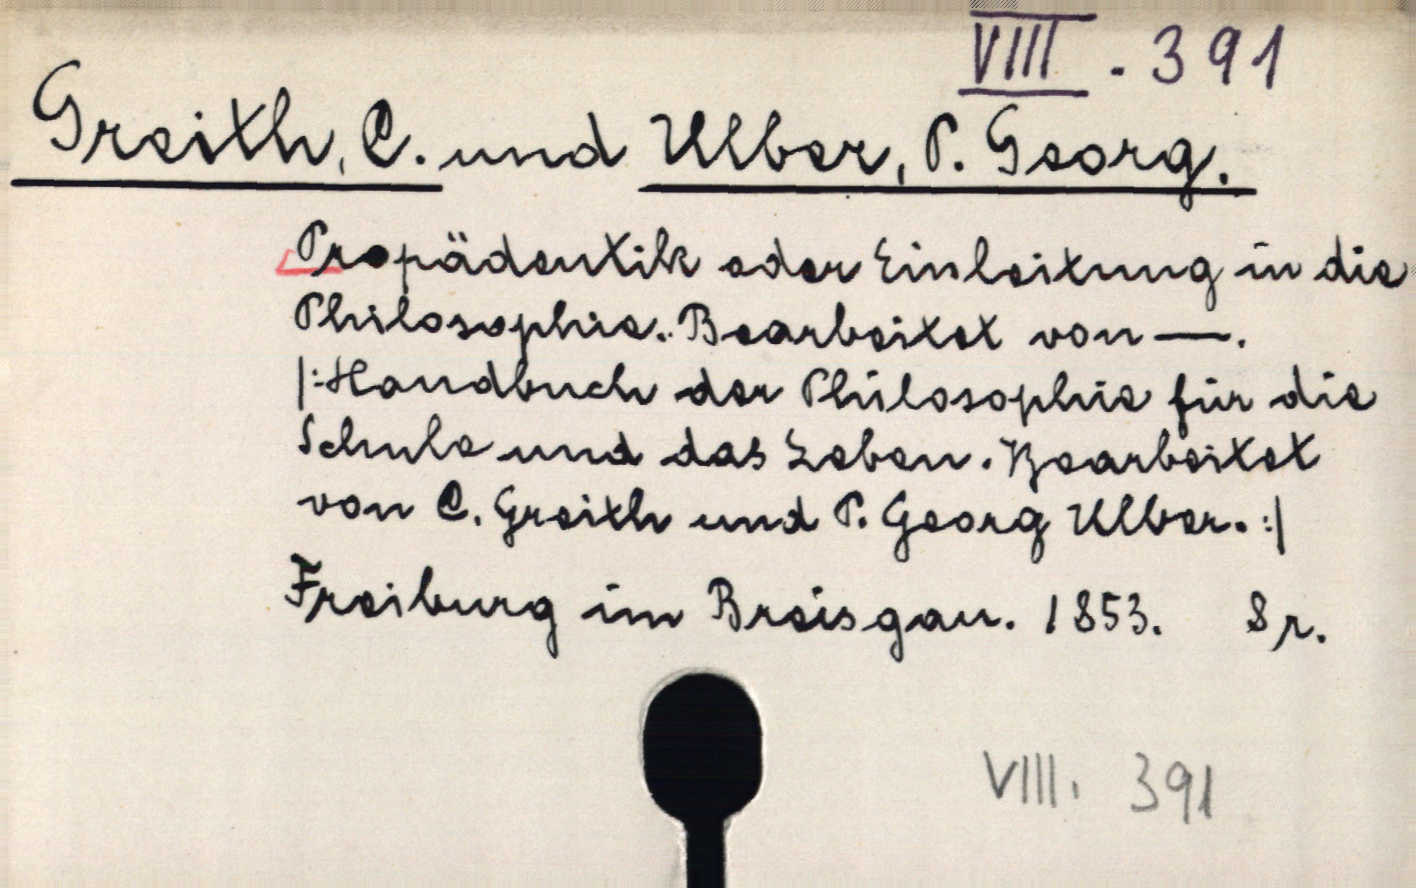 VIII . 391
Greith, C. und Ulber, P. Georg.
Propädeutik oder Einleitung in die
Philosophie. Bearbeitet von —.
|:Handbuch der Philosophie für die
Schule und das Leben. Bearbeitet
von C. Greith und P. Georg Ulber. :|
Freiburg im Breisgau. 1853. 8 r.
VIII. 391